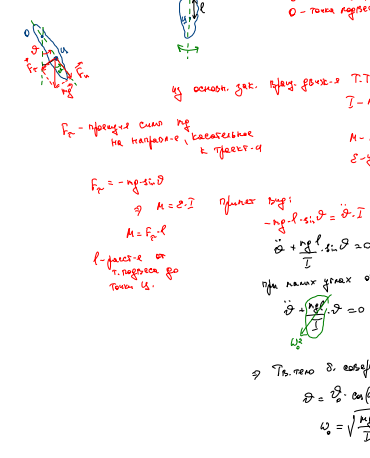 O - точка подвеса
из основн. зак. вращ. движ-я Т.Т
I -
F_τ - проекц-я силы mg
на направл-е, касательное
к траект-и
M -
ε -
F_τ = -mg·sinϑ
⇒ M = ε·I примет вид:
-mg·l·sinϑ = ϑ̈·I
M = F_τ·l
ϑ̈ + mgl/I · sinϑ = 0
l - расст-е от
т. подвеса до
точки ц.
при малых углах
ϑ̈ + mgl/I · ϑ = 0
ω₀²
⇒ Тв. тело б. совер
ϑ = ϑ₀ · cos(
ω₀ = √